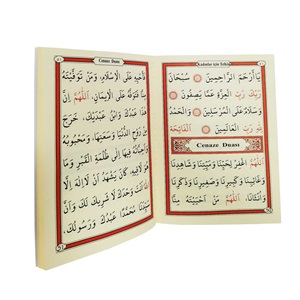 Kadınlar için Telkin
يَا أَرْحَمَ الرَّاحِمِينَ سُبْحَانَ
رَبِّكَ رَبِّ الْعِزَّةِ عَمَّا يَصِفُونَ
وَسَلَامٌ عَلَى الْمُرْسَلِينَ وَالْحَمْدُ
لِلَّهِ رَبِّ الْعَالَمِينَ الْفَاتِحَة
Cenaze Duası
اَللّٰهُمَّ اغْفِرْ لِحَيِّنَا وَمَيِّتِنَا وَشَاهِدِنَا
وَغَائِبِنَا وَكَبِيرِنَا وَصَغِيرِنَا وَذَكَرِنَا
وَاُنْثَانَا اَللّٰهُمَّ مَنْ اَحْيَيْتَهُ مِنَّا
Cenaze Duası
فَاَحْيِهِ عَلَى الْاِسْلَامِ، وَمَنْ تَوَفَّيْتَهُ
مِنَّا فَتَوَفَّهُ عَلَى الْاِيمَانِ، اَللّٰهُمَّ اِنَّ
هٰذَا عَبْدُكَ وَابْنُ عَبْدَيْكَ، خَرَجَ
مِنْ رَوْحِ الدُّنْيَا وَسَعَتِهَا، وَمَحْبُوبُهُ
وَاَحِبَّاؤُهُ فِيهَا اِلَى ظُلْمَةِ الْقَبْرِ وَمَا
هُوَ لَاقِيهِ، كَانَ يَشْهَدُ اَنْ لَا اِلٰهَ اِلَّا
اَنْتَ وَحْدَكَ لَا شَرِيكَ لَكَ وَاَنَّ
سَيِّدَنَا مُحَمَّدًا عَبْدُكَ وَرَسُولُكَ،